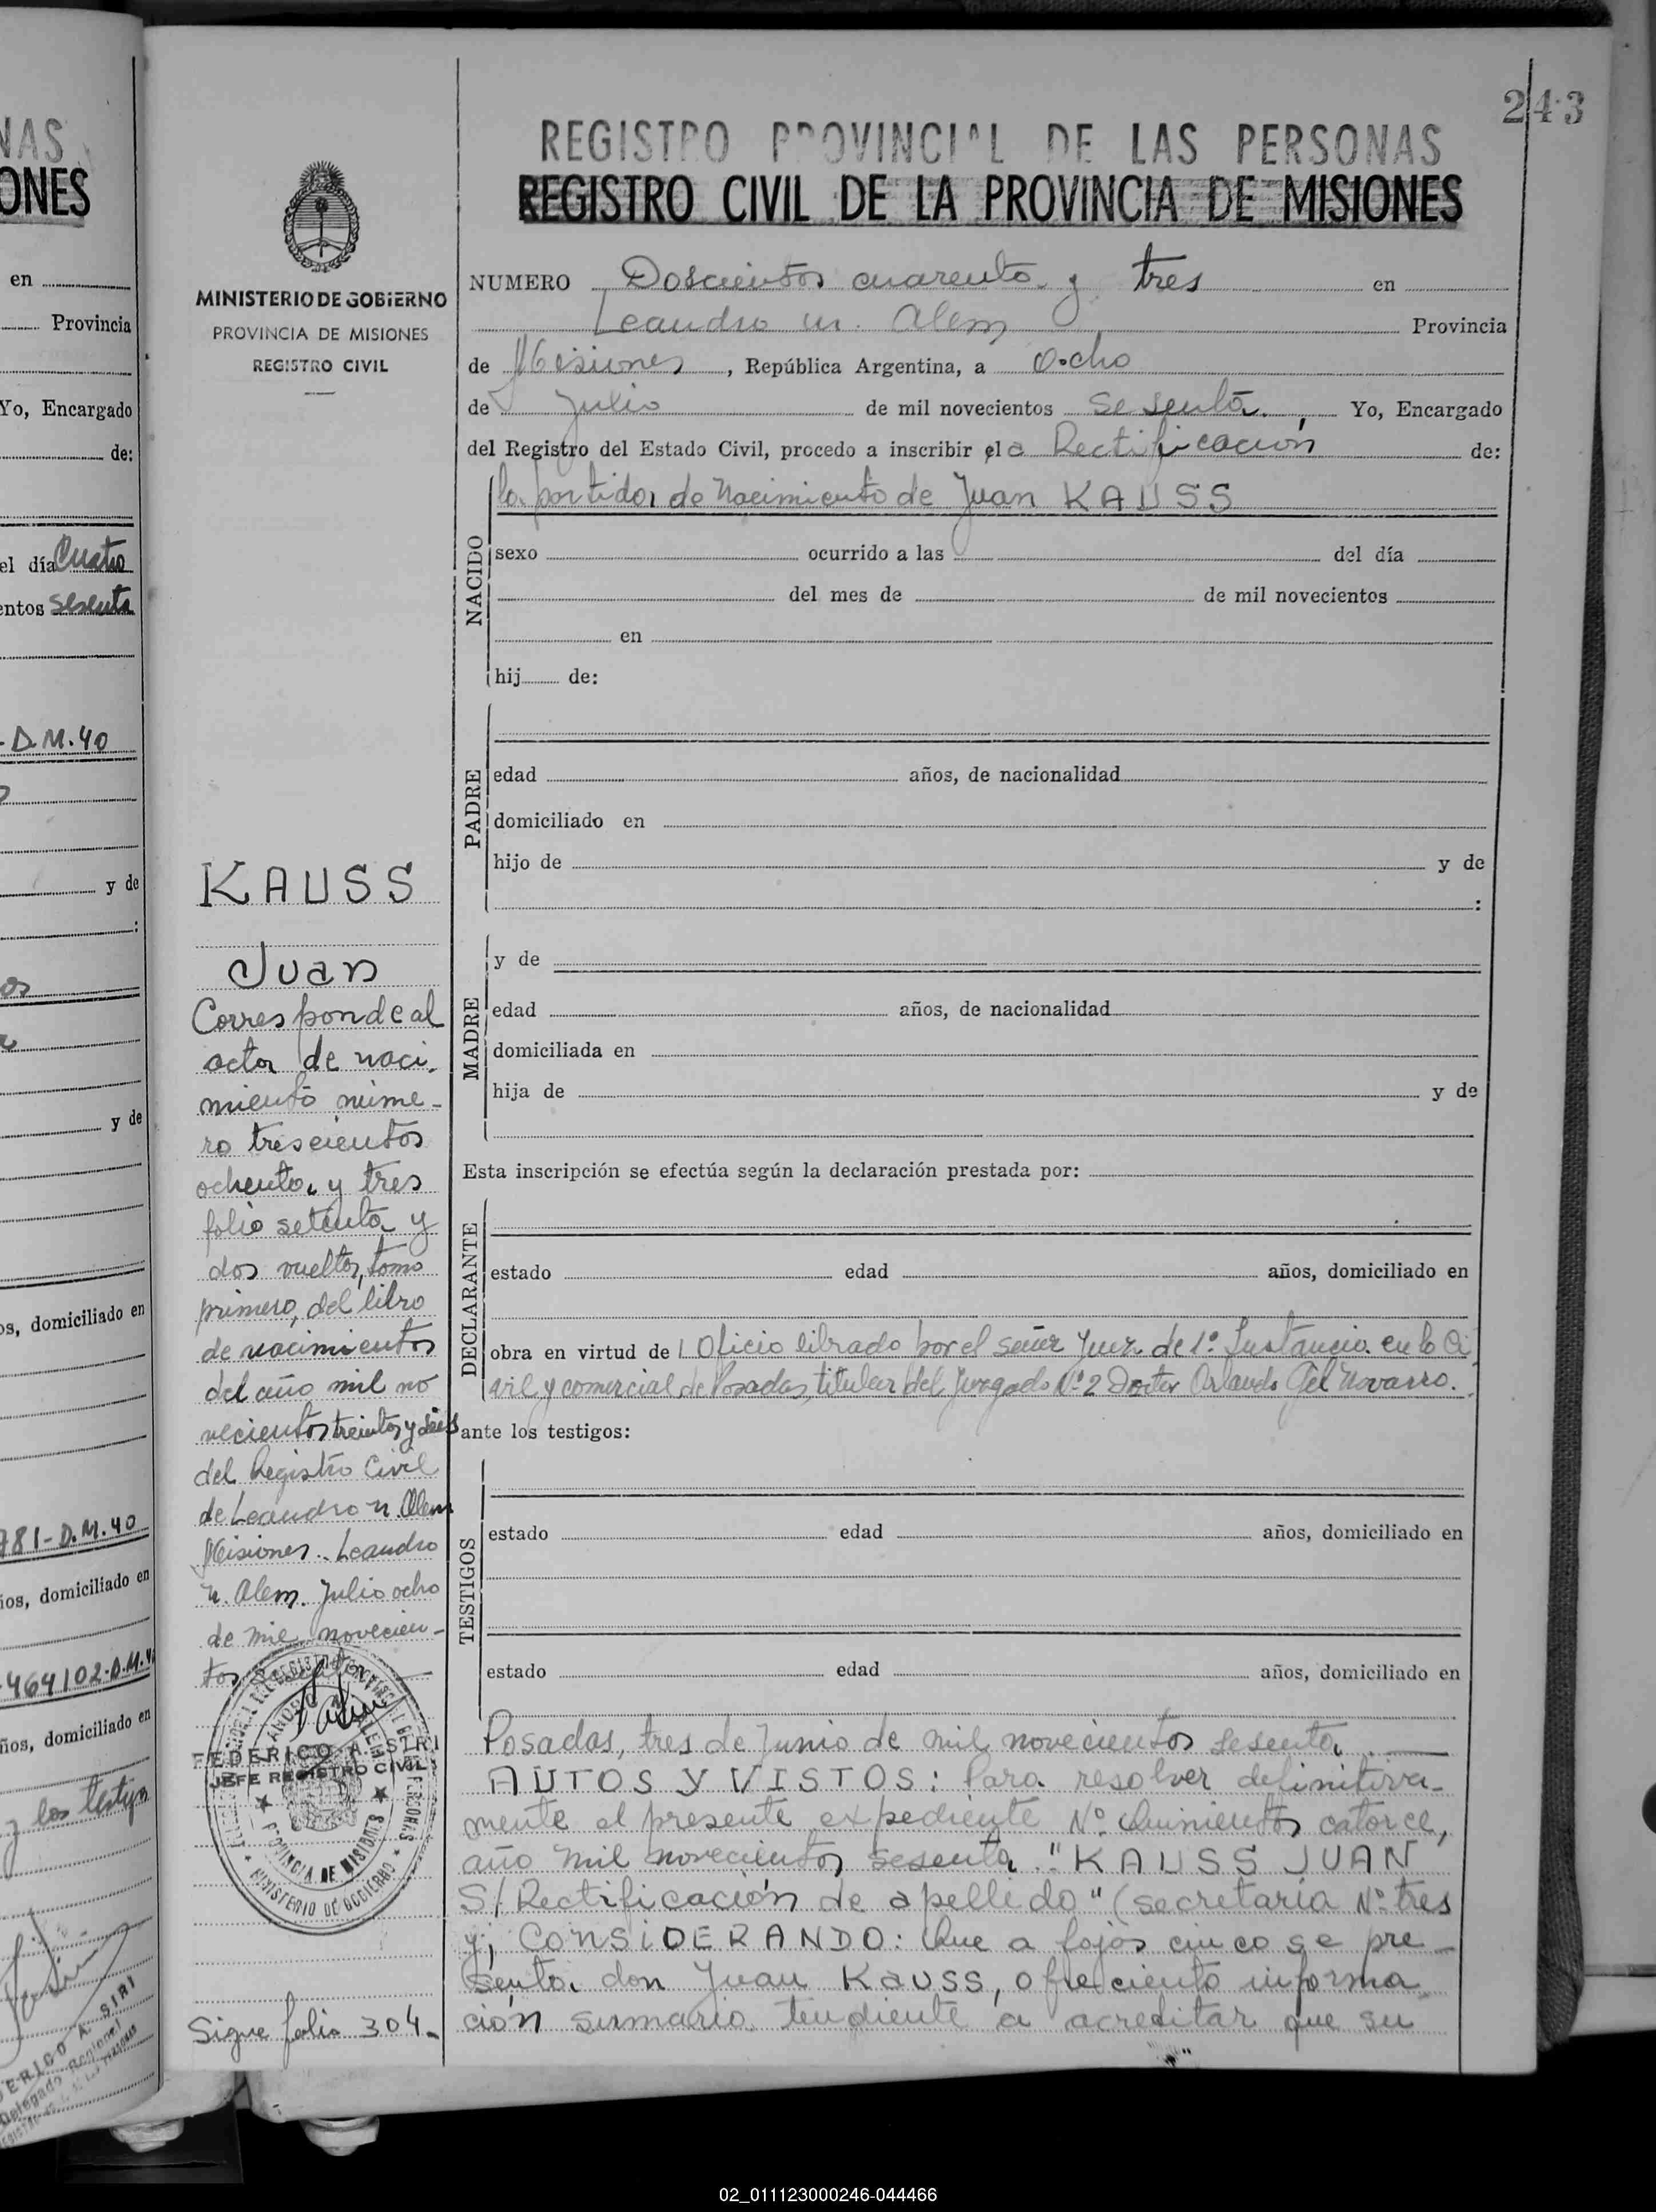 243
REGISTRO PROVINCIAL DE LAS PERSONAS
REGISTRO CIVIL DE LA PROVINCIA DE MISIONES
MINISTERIO DE GOBIERNO
PROVINCIA DE MISIONES
REGISTRO CIVIL
NUMERO Doscientos cuarenta y tres en
Leandro N. Alem Provincia
de Misiones, República Argentina, a Ocho
de Julio de mil novecientos Sesenta. Yo, Encargado
del Registro del Estado Civil, procedo a inscribir el a Rectificación de:
NACIDO
la partida de Nacimiento de Juan KAUSS
sexo ocurrido a las del día
del mes de de mil novecientos
en
hij de:
PADRE
edad años, de nacionalidad
domiciliado en
hijo de y de
:
MADRE
y de
edad años, de nacionalidad
domiciliada en
hija de y de
Esta inscripción se efectúa según la declaración prestada por:
DECLARANTE
estado edad años, domiciliado en
obra en virtud de Oficio librado por el señor Juez de 1º Instancia en lo Ci
vil y comercial de Posadas, titular del Juzgado Nº 2 Doctor Orlando Gil Navarro.
ante los testigos:
TESTIGOS
estado edad años, domiciliado en
estado edad años, domiciliado en
Posadas, tres de Junio de mil novecientos sesenta.
AUTOS Y VISTOS: Para resolver definitiva-
mente el presente expediente Nº Quinientos catorce,
año mil novecientos sesenta. "KAUSS JUAN
S/ Rectificación de apellido" (secretaría Nº tres
y; CONSIDERANDO: Que a fojas cinco se pre-
senta don Juan Kauss, ofreciento informa
ción sumaria tendiente a acreditar que su
KAUSS
Juan
Corresponde al
acta de naci-
miento núme-
ro trescientos
ochenta y tres
folio setenta y
dos vuelta, tomo
primero, del libro
de nacimientos
del año mil no
vecientos treinta y seis
del Registro Civil
de Leandro N. Alem
Misiones. Leandro
N. Alem. Julio ocho
de mil novecien-
tos sesenta
FEDERICO A. SIRI
JEFE REGISTRO CIVIL
PROVINCIA DE MISIONES
MINISTERIO DE GOBIERNO
Sigue folio 304.
NAS
ONES
en
Provincia
Yo, Encargado
de:
el día Cuatro
entos Sesenta
-D.M.40
y de
:
y de
os, domiciliado en
781-D.M.40
ios, domiciliado en
464102-D.M.4
ños, domiciliado en
y los testigos
DERICO A. SIRI
Delegado Regional
02_011123000246-044466